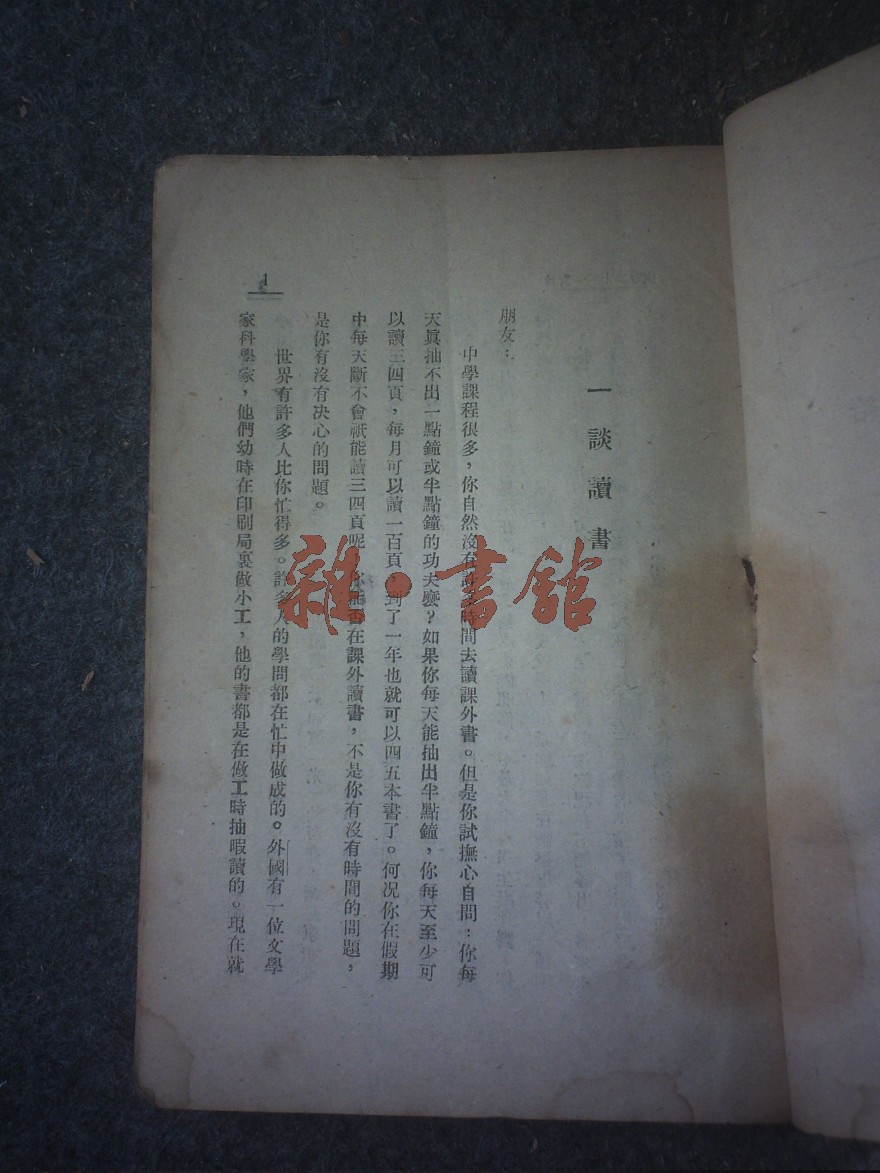 一 談 讀 書
朋友：
中學課程很多，你自然沒有許多時間去讀課外書。但是你試撫心自問：你每
天眞抽不出一點鐘或半點鐘的功夫麽？如果你每天能抽出半點鐘，你每天至少可
以讀三四頁，每月可以讀一百頁，到了一年也就可以四五本書了。何况你在假期
中每天斷不會祇能讀三四頁呢，你能否在課外讀書，不是你有沒有時間的問題，
是你有沒有決心的問題。
世界有許多人比你忙得多。許多人的學問都在忙中做成的。外國有一位文學
家科學家，他們幼時在印刷局裏做小工，他的書都是在做工時抽暇讀的。現在就
1
雜·書館